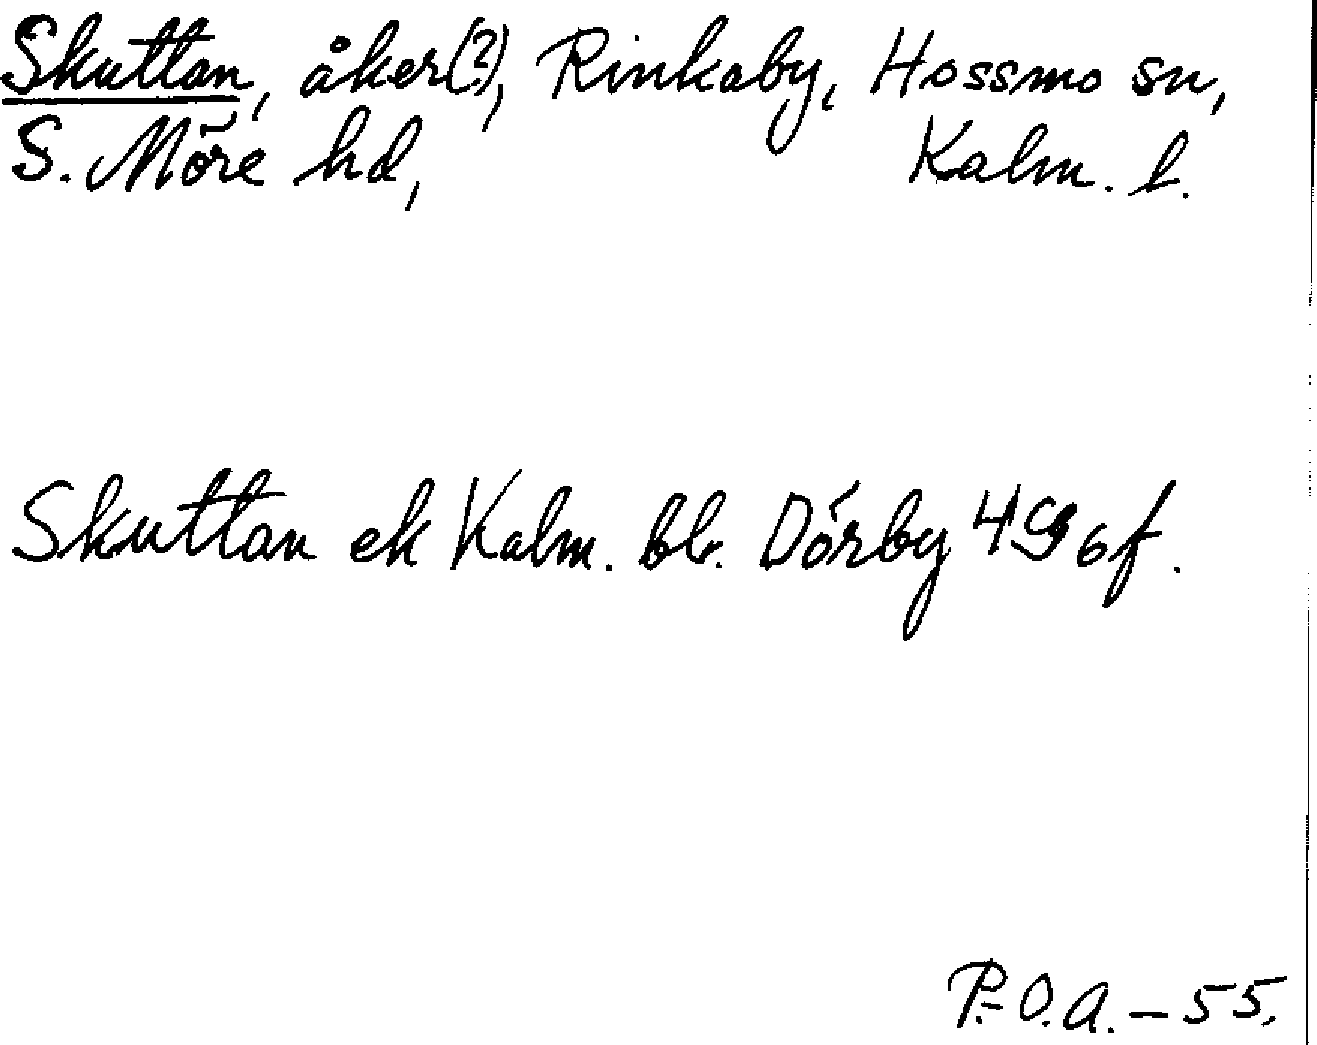 Skuttan, åker(?), Rinkaby, Hossmo sn,
S. Möre hd, Kalm. l.
Skuttan ek Kalm. bl. Dörby 4 9 6 f.
P.-O.A. – 55.